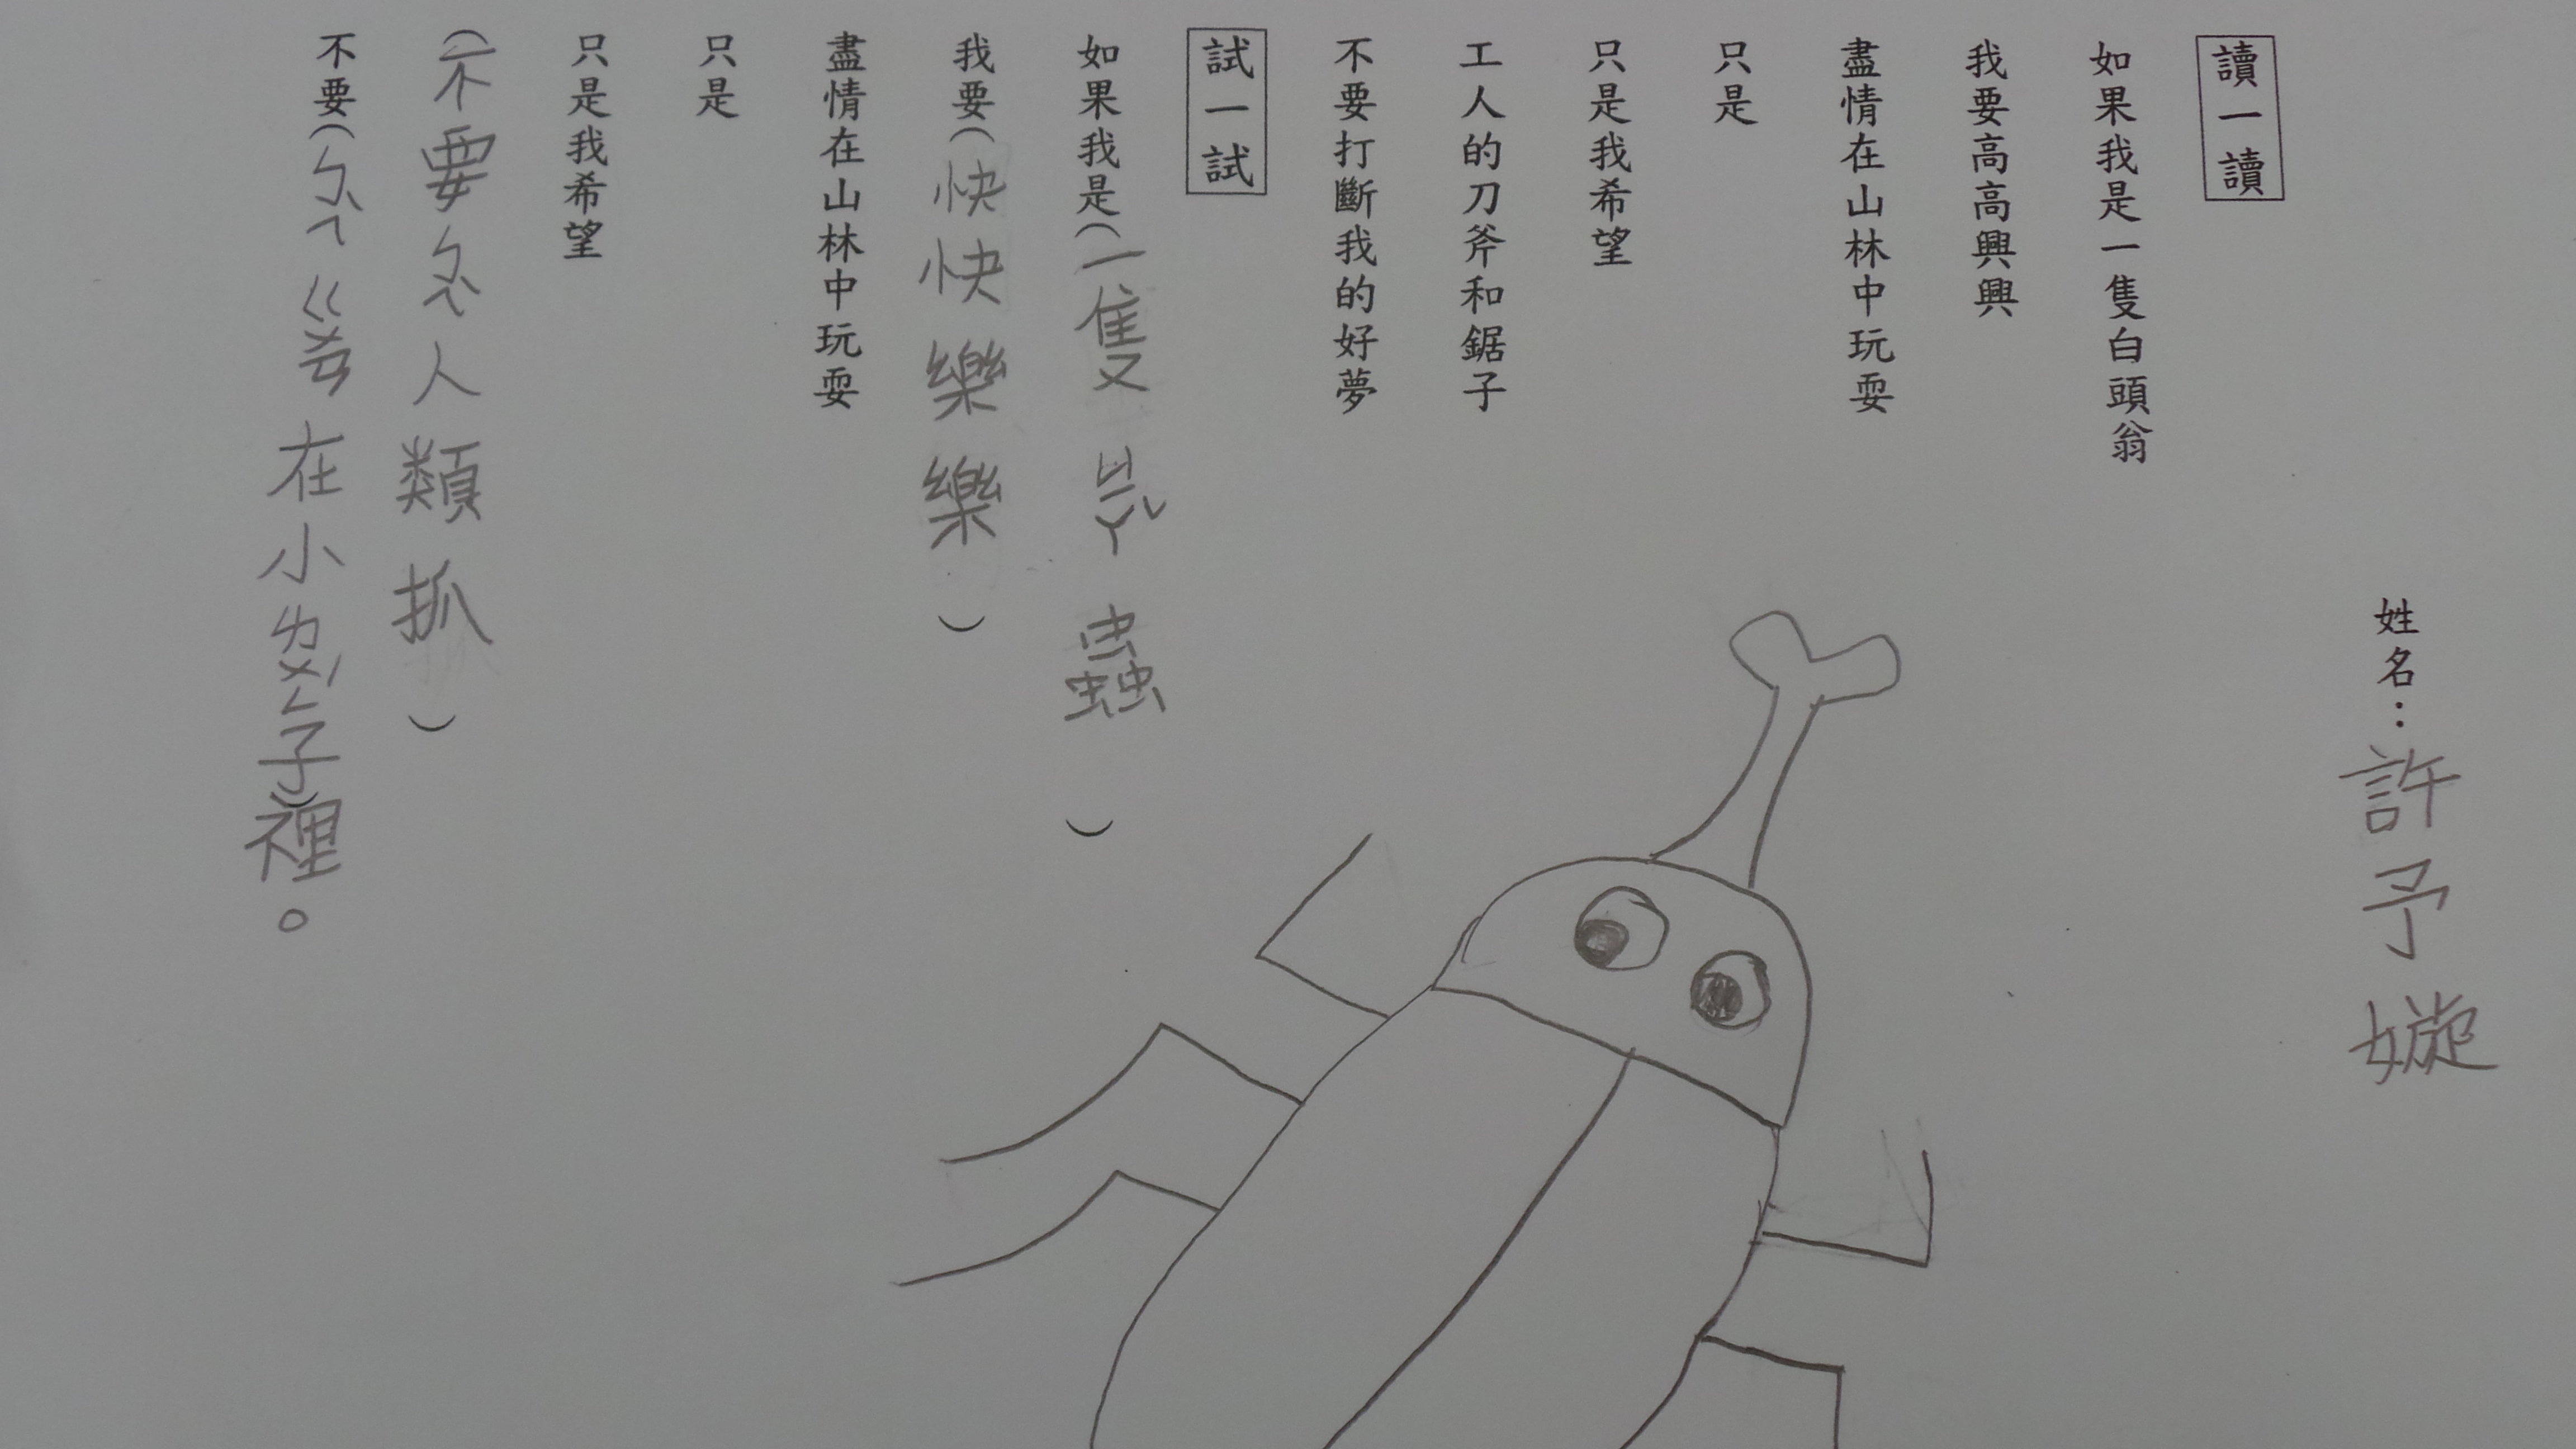 姓名：許予嫙
讀一讀
如果我是一隻白頭翁
我要高高興興
盡情在山林中玩耍
只是
只是我希望
工人的刀斧和鋸子
不要打斷我的好夢
試一試
如果我是(一隻ㄐㄧㄚˇ蟲)
我要(快快樂樂)
盡情在山林中玩耍
只是
只是我希望
(不要ㄅㄟˋ人類抓)
不要(ㄅㄟˋㄍㄨㄢ在小ㄌㄨㄥˊ子)裡。